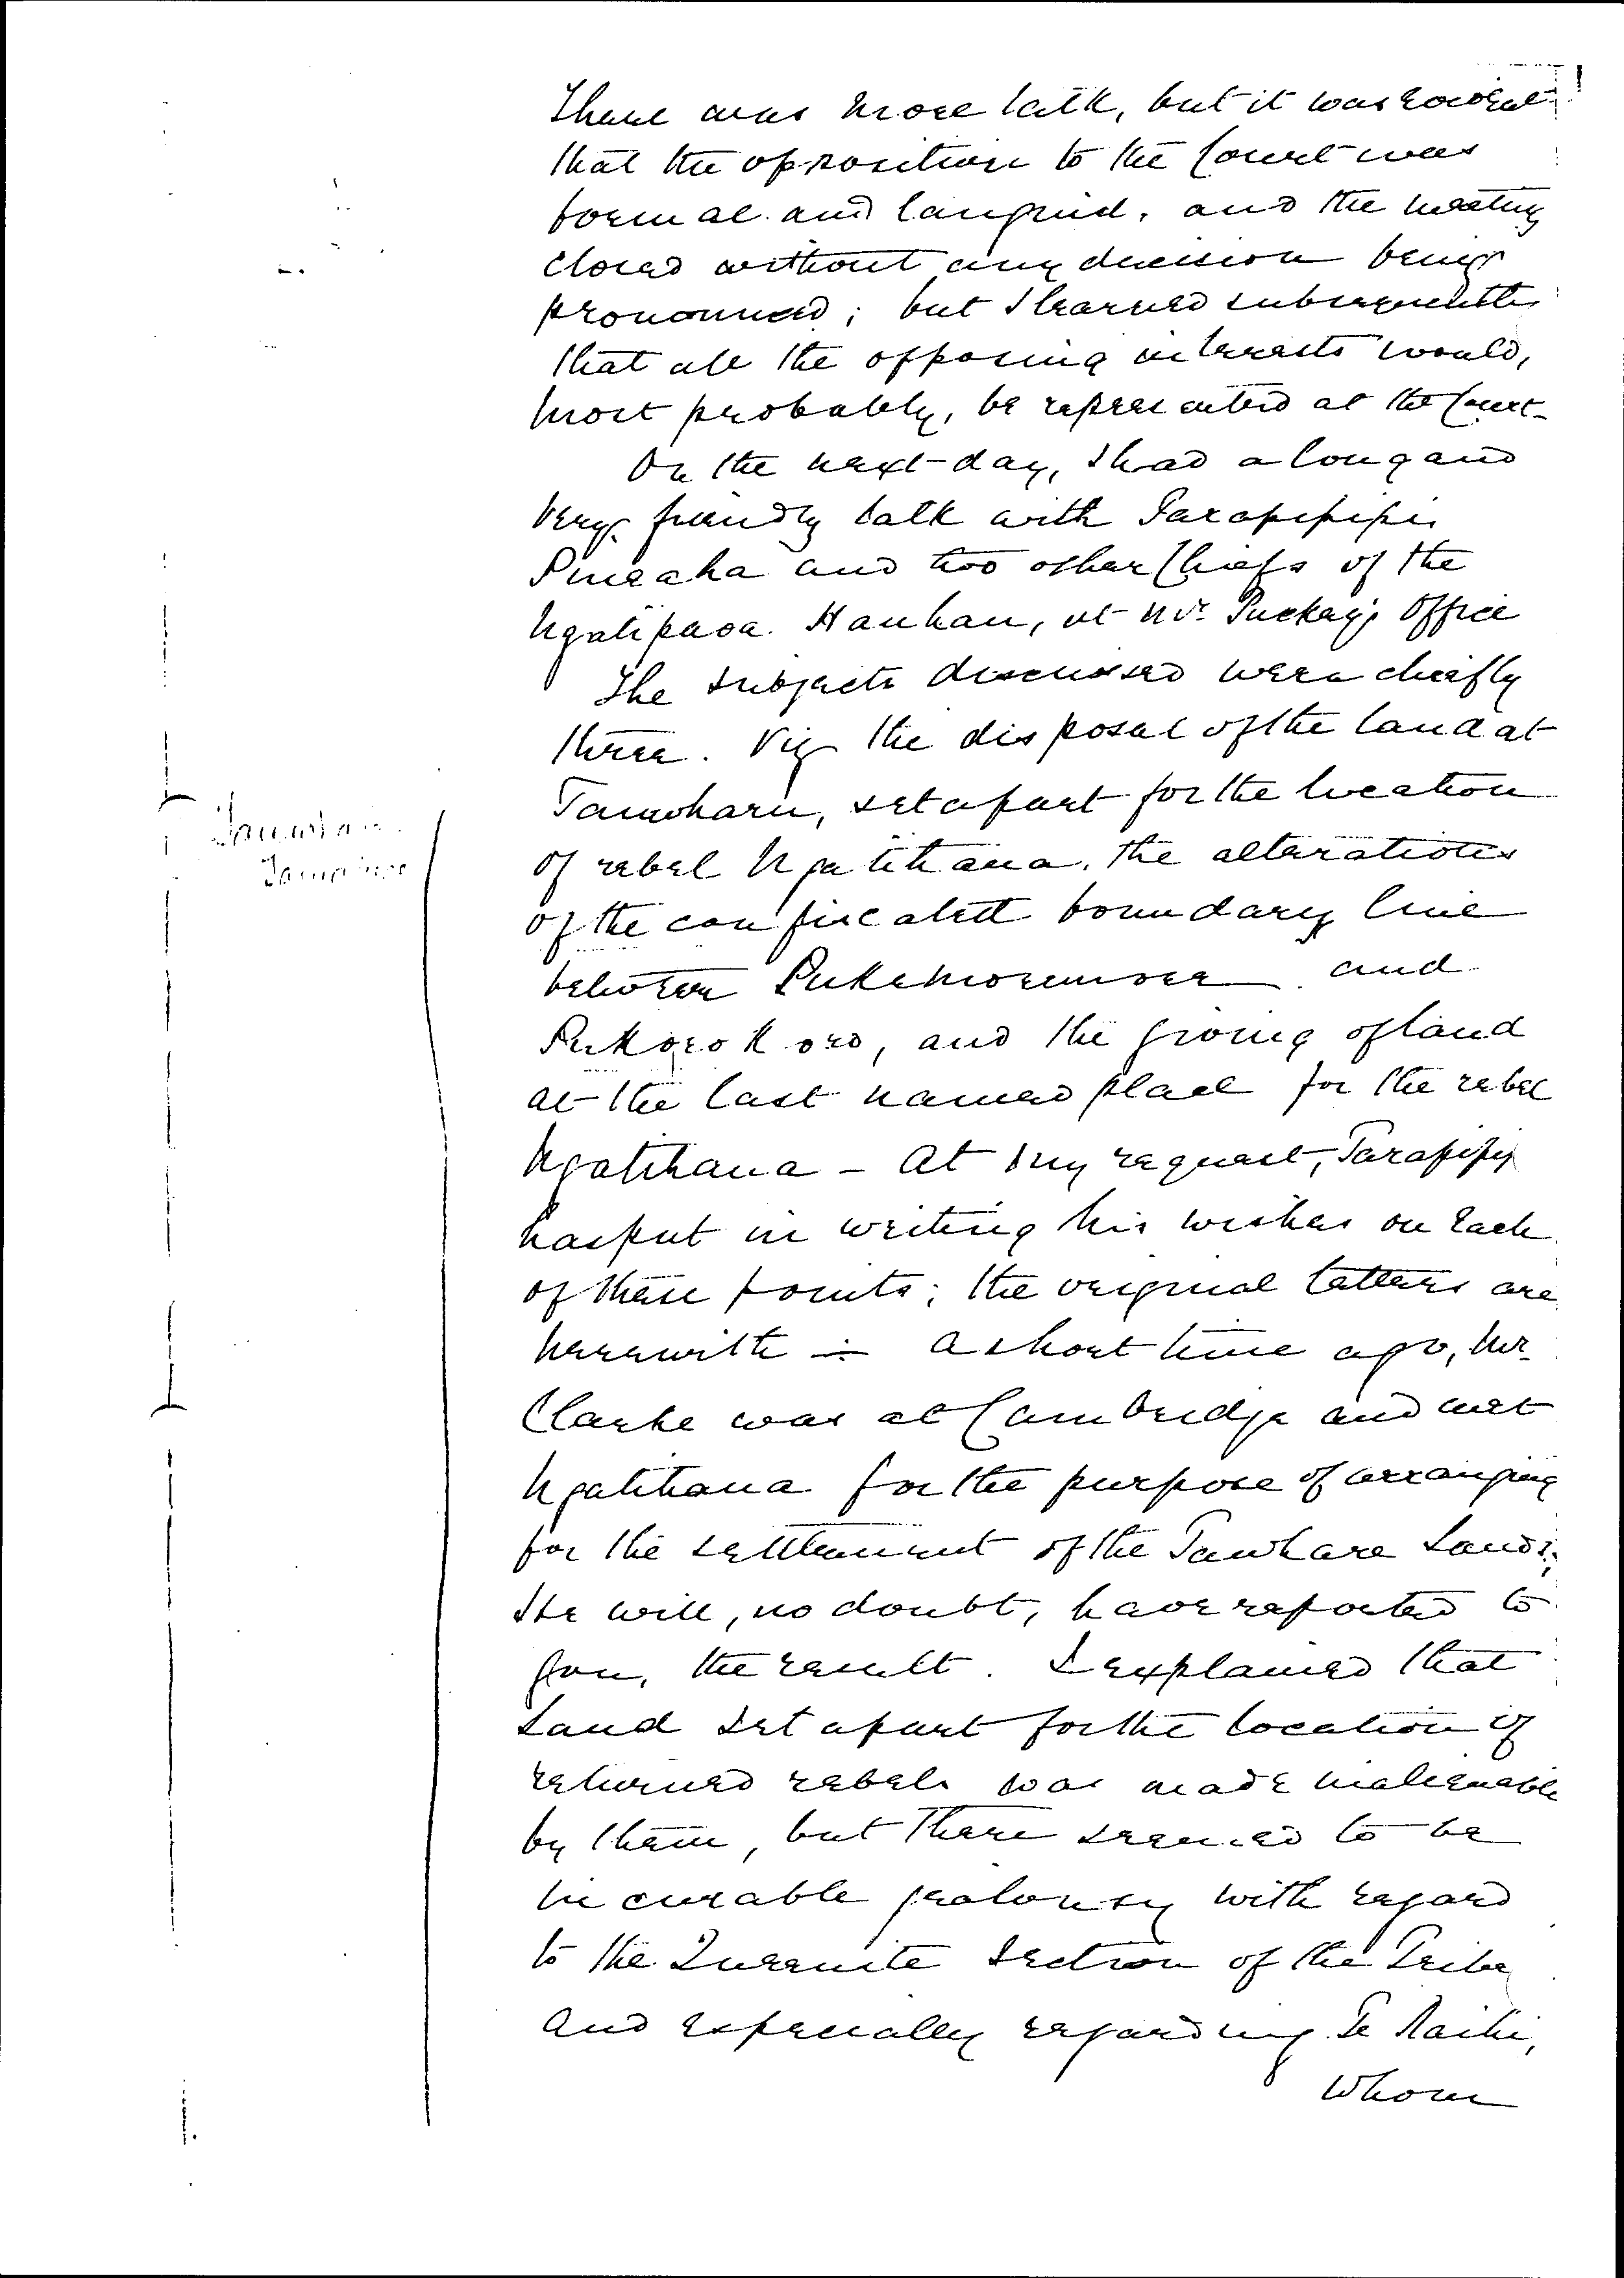 There was more talk, but it was evident
that the opposition to the Court was
formal and languid, and the meeting
closed without any decision being
pronounced; but I learned subsequently
that all the opposing interests would,
most probably, be represented at the Court.
On the next day, I had a long and
very friendly talk with Tarapipipi
and two other Chiefs of the
Ngatipaoa Hauhau, at Mr. Puckey's Office
The subjects discussed were chiefly
three. Viz the disposal of the land at
set apart for the location
of rebel Ngatihaua, the alterations
of the confiscated boundary line
between Pukemoremore and
Pukorokoro, and the giving of land
at the last named place for the rebel
Ngatihaua – At my request, Tarapipipi
has put in writing his wishes on each
of these points; the original letters are
herewith – A short time ago, Mr.
Clarke was at Cambridge and met
Ngatihaua for the purpose of arranging
for the settlement of the Tauwhare Lands;
He will, no doubt, have reported to
you, the result. I explained that
Land set apart for the location of
returned rebels was made inalienable
by them, but there seemed to be
incurable jealousy with regard
to the Queenite Section of the Tribe
and especially regarding Te Raihi,
Whom